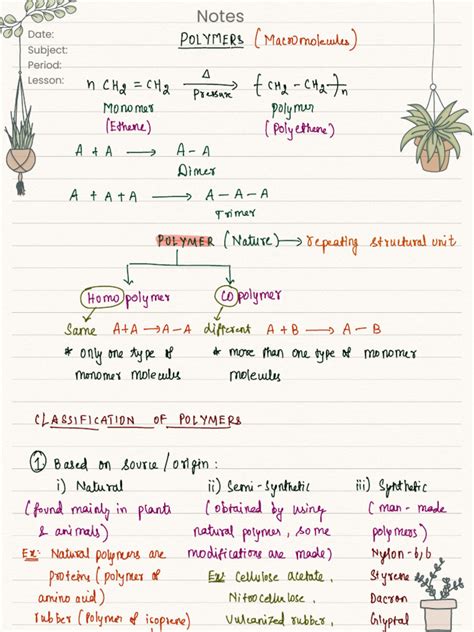 Notes
Date:
Subject:
Period:
Lesson:
POLYMERS (Macromolecules)
n CH2 = CH2 —Δ/Pressure→ {CH2 - CH2}n
Monomer polymer
(Ethene) (Polyethene)
A + A → A - A
Dimer
A + A + A → A - A - A
Trimer
POLYMER (Nature) → repeating structural unit
Homopolymer Copolymer
Same A+A → A-A different A + B → A - B
* only one type of * more than one type of monomer
monomer molecules molecules
CLASSIFICATION OF POLYMERS
① Based on source/origin:
i) Natural ii) Semi-Synthetic iii) Synthetic
(found mainly in plants (obtained by using (man-made
& animals) natural polymer, some polymers)
Ex: Natural polymers are modifications are made) Nylon-6,6
proteins (polymer of Ex: Cellulose acetate, Styrene
amino acid) Nitrocellulose, Dacron
rubber (Polymer of isoprene) Vulcanized rubber, Glyptal